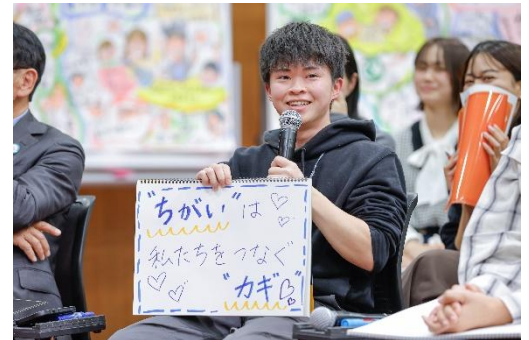 "ちがい"は
私たちをつなぐ
"カギ"